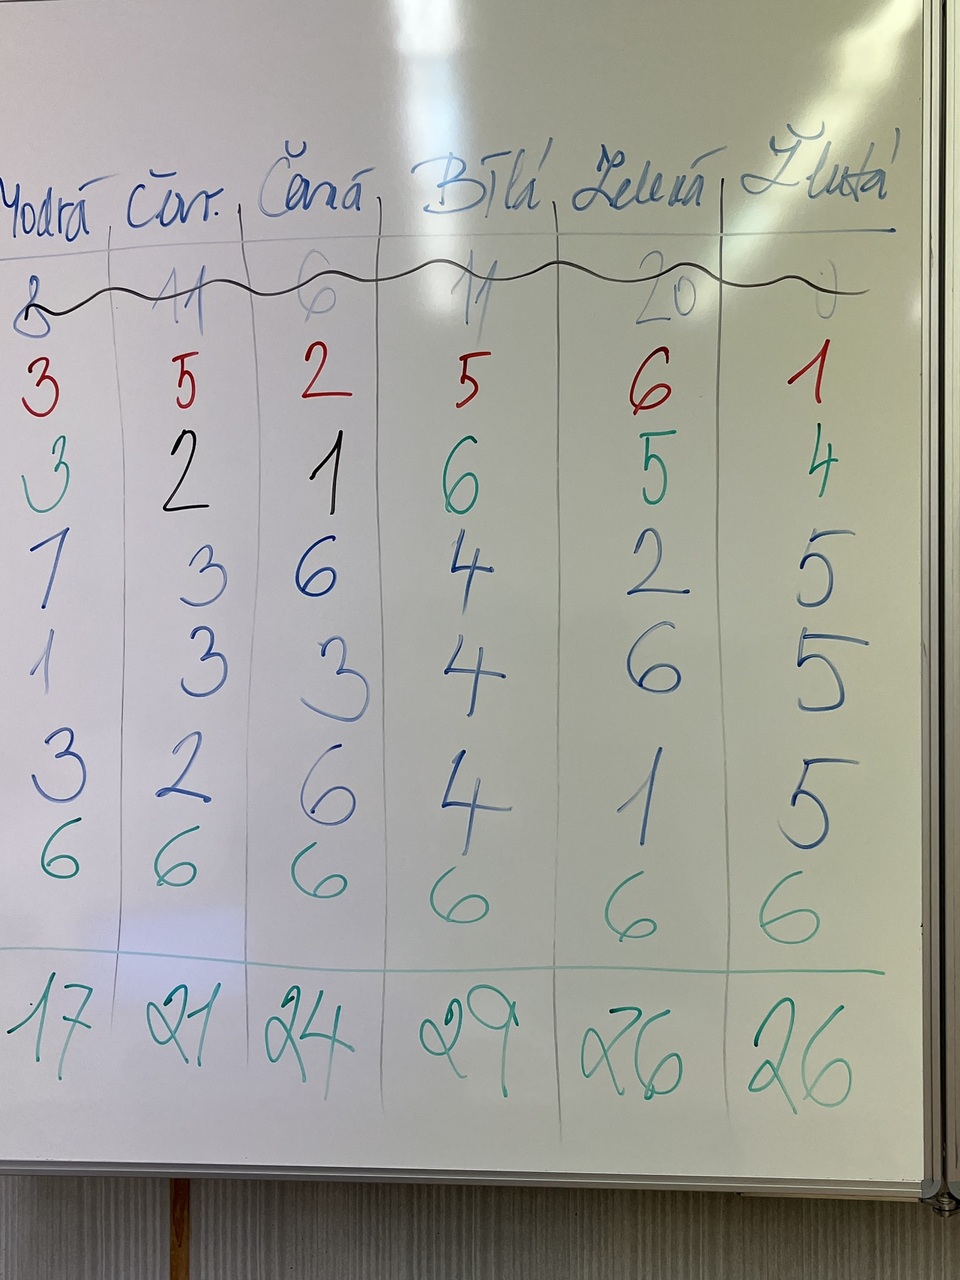 Modrá Čer. Černá Bílá Zelená Žlutá
8 11 6 11 20 0
3 5 2 5 6 1
3 2 1 6 5 4
1 3 6 4 2 5
1 3 3 4 6 5
3 2 6 4 1 5
6 6 6 6 6 6
17 21 24 29 26 26